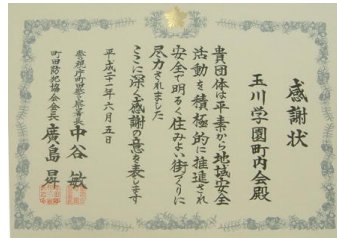 感謝状
玉川学園町内会殿
貴団体は平素から地域安全
活動を積極的に推進され
安全で明るく住みよい街づくりに
尽力されました
ここに深く感謝の意を表します
平成二十一年六月五日
警視庁町田警察署長 中谷 敏
町田防犯協会会長 廣島 昇